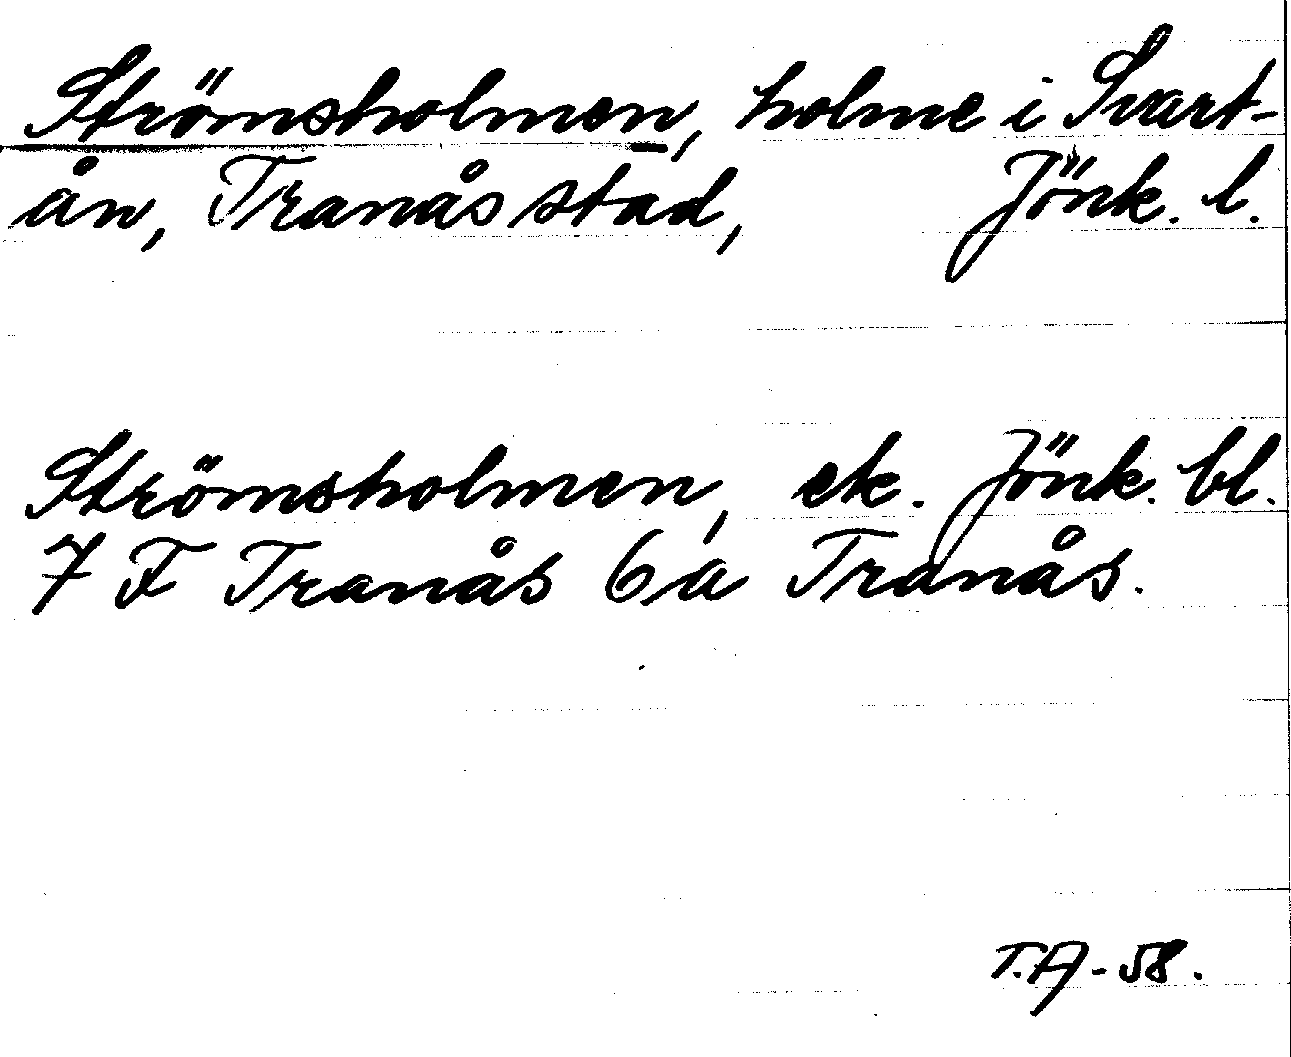 Strömsholmen, holme i Svart-
ån, Tranås stad, Jönk. l.
Strömsholmen, ek. Jönk. bl.
7 F Tranås 6a Tranås.
T.A-58.